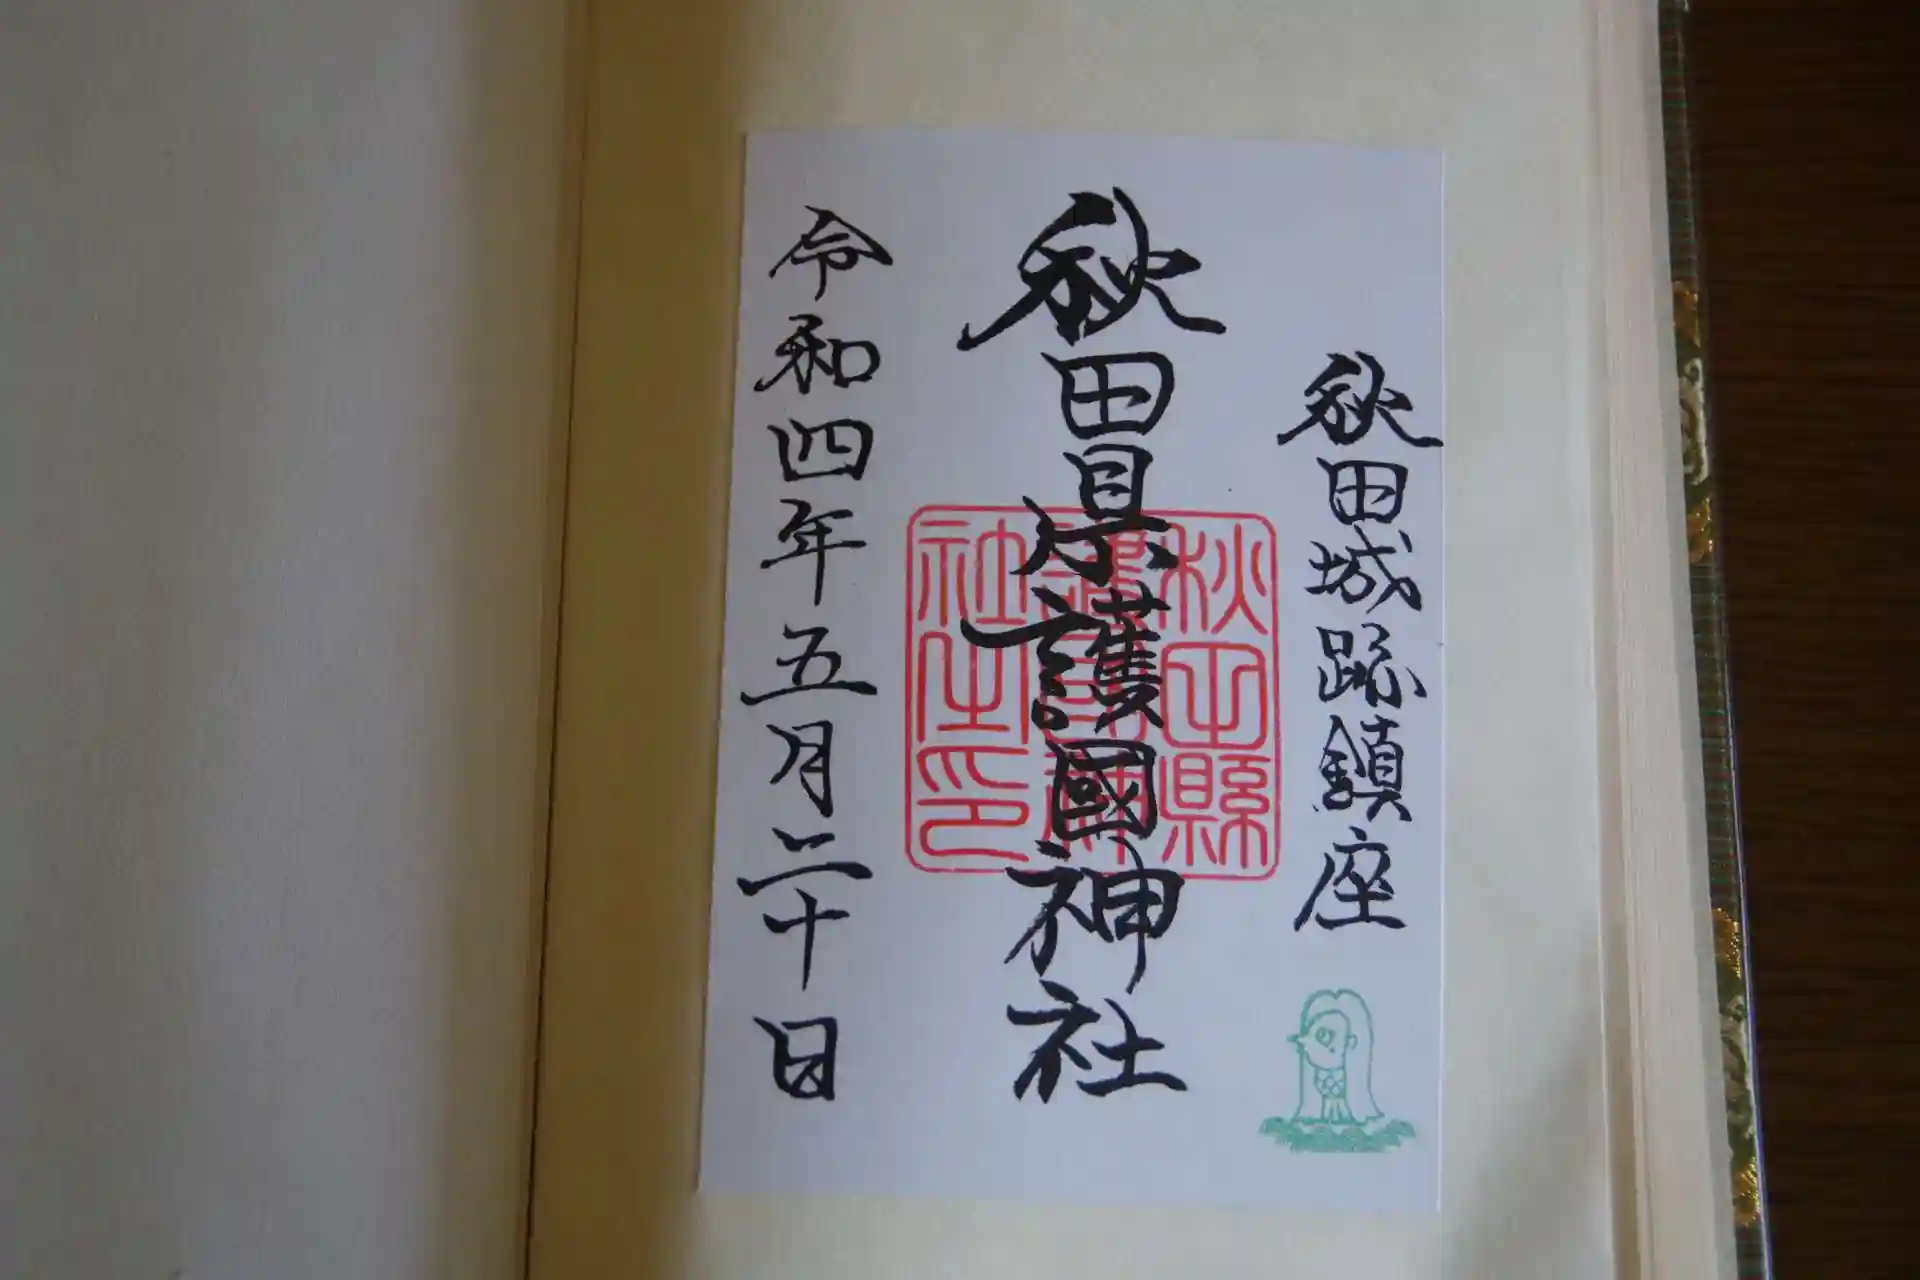 秋田城跡鎮座
秋田県護國神社
秋田縣護國神社之印
令和四年五月二十日